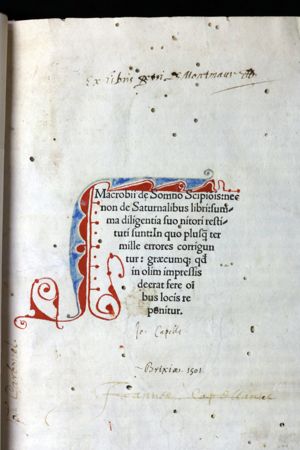 Ex libris de Montmaur
Macrobii de Somno Scipiois: nec
non de Saturnalibus libri: sum̄
ma diligentia suo nitori resti⸗
tuti sunt: In quo plusq̄ ter
mille errores corrigun
tur: græcumq; qd̄
in olim impressis
deerat fere oı̄
bus locis re
ponitur.
Jo: Capelle
Brixiæ 1501
Joannes Capellanus